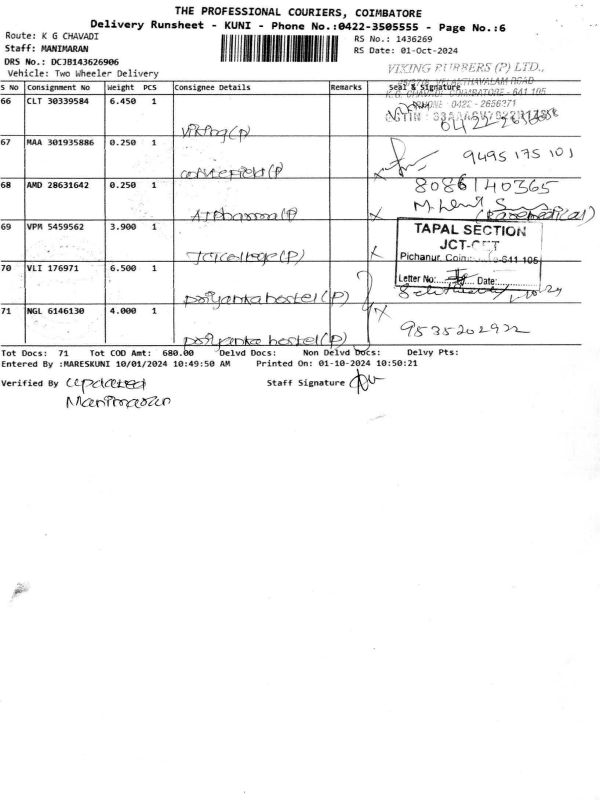 THE PROFESSIONAL COURIERS, COIMBATORE
Delivery Runsheet - KUNI - Phone No.:0422-3505555 - Page No.:6
Route: K G CHAVADI
RS No.: 1436269
Staff: MANIMARAN
RS Date: 01-Oct-2024
DRS No.: DCJB143626906
Vehicle: Two Wheeler Delivery
VIKING RUBBERS (P) LTD.,
VELANTHAVALAM ROAD
COIMBATORE - 641 105
PHONE : 0422 - 2656371
S No Consignment No Weight PCS Consignee Details Remarks Seal & Signature
66 CLT 30339584 6.450 1
Viking(P)
67 MAA 301935886 0.250 1
9495 175 101
68 AMD 28631642 0.250 1
8086140365
A1 pharma(P)
69 VPM 5459562 3.900 1
TAPAL SECTION
JCT-CET
Pichanur, 641 105
JCT college(P)
70 VLI 176971 6.500 1
Letter No: Date:
Priyanka hostel(P)
71 NGL 6146130 4.000 1
9535202922
Priyanka hostel(P)
Tot Docs: 71 Tot COD Amt: 680.00 Delvd Docs: Non Delvd Docs: Delvy Pts:
Entered By :MARESKUNI 10/01/2024 10:49:50 AM Printed On: 01-10-2024 10:50:21
Verified By updated Staff Signature
Manimaran